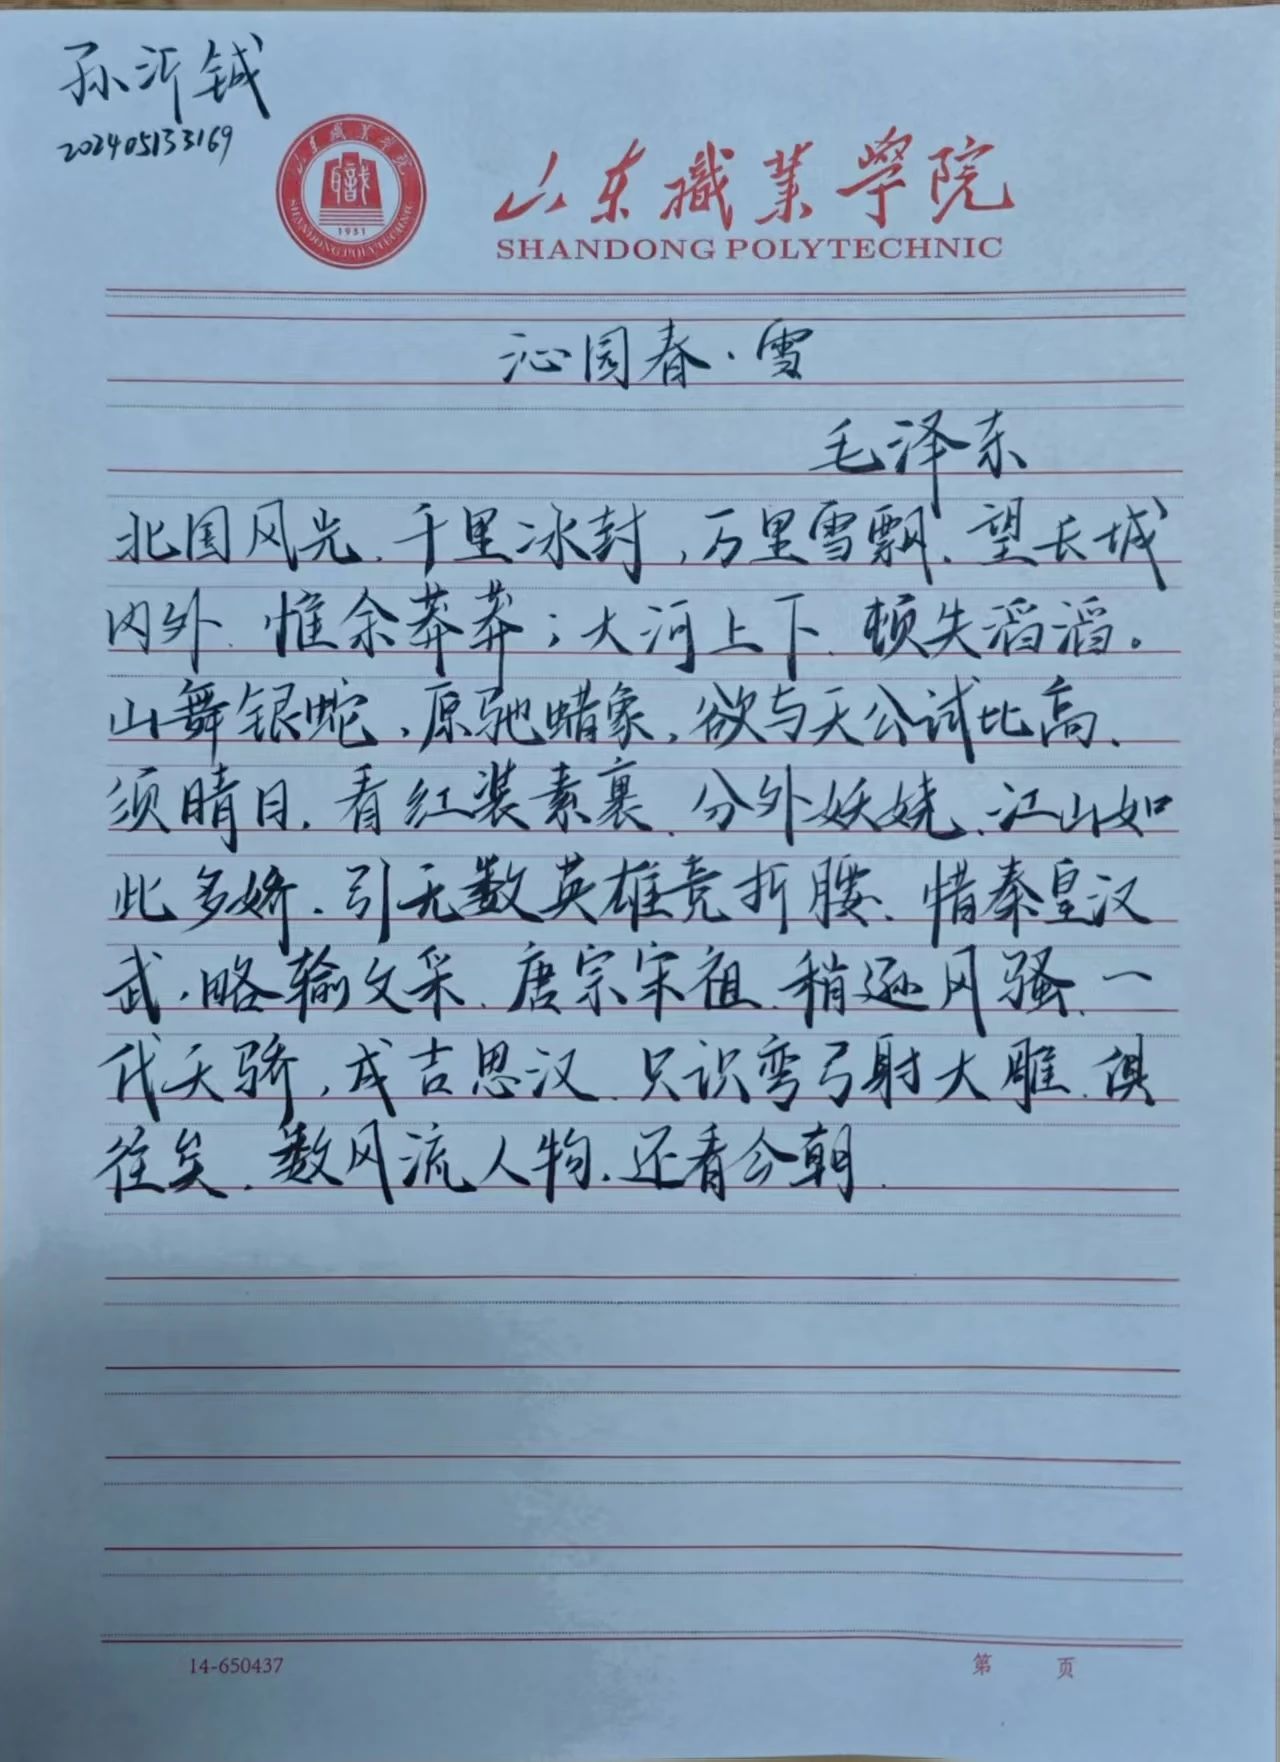 孙沂铖
202405133169
山东职业学院
SHANDONG POLYTECHNIC
1951
山东職業学院
SHANDONG POLYTECHNIC
沁园春·雪
毛泽东
北国风光、千里冰封,万里雪飘、望长城
内外、惟余莽莽;大河上下、顿失滔滔。
山舞银蛇,原驰蜡象,欲与天公试比高、
须晴日,看红装素裹、分外妖娆、江山如
此多娇、引无数英雄竞折腰、惜秦皇汉
武,略输文采、唐宗宋祖、稍逊风骚、一
代天骄,成吉思汉、只识弯弓射大雕、俱
往矣、数风流人物、还看今朝、
14-650437
第 页